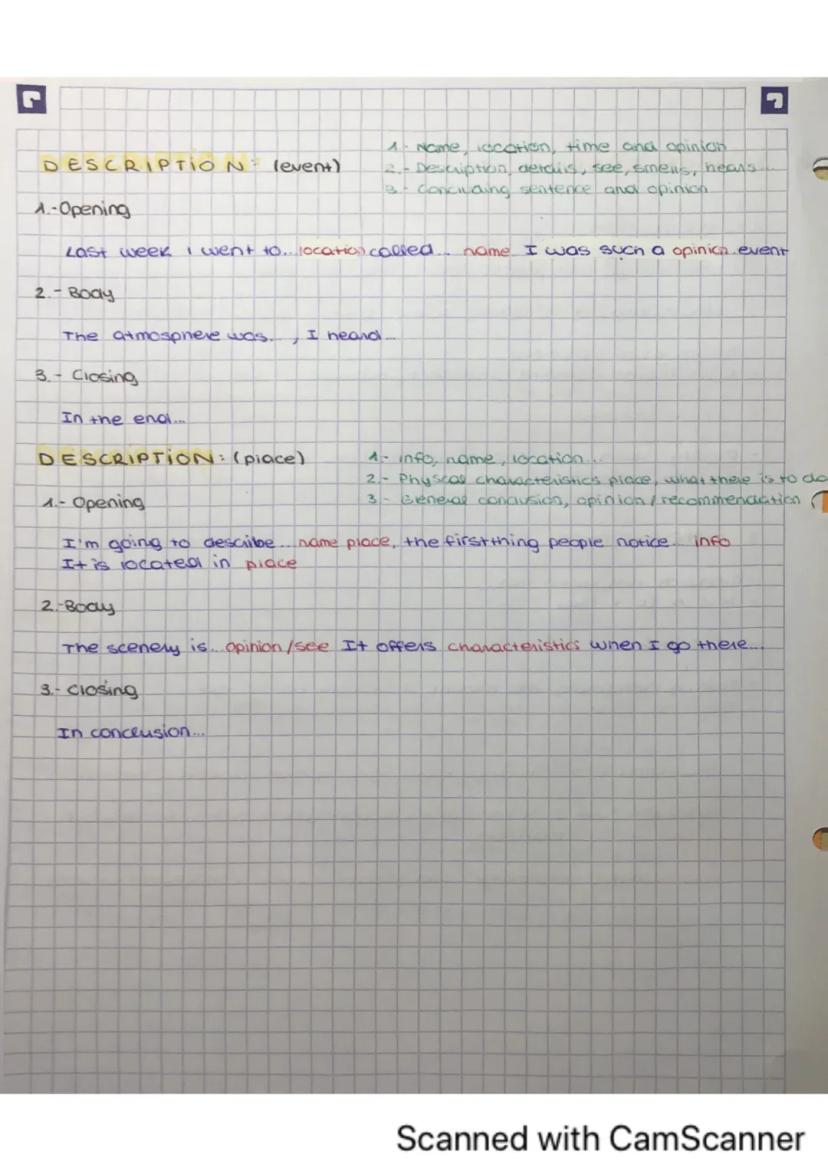 DESCRIPTION: (event)
1.- Name, location, time and opinion
2.- Description, details, see, smells, hears...
3.- Concluding sentence and opinion
1.-Opening
Last week I went to... location called... name I was such a opinion event
2.- Body
The atmosphere was..., I heard...
3.- Closing
In the end...
DESCRIPTION: (place)
1.- info, name, location...
2.- Physical characteristics place, what there is to do
3.- General conclusion, opinion/recommendation
1.- Opening
I'm going to describe... name place, the first thing people notice... info
It is located in place
2.-Body
The scenery is... opinion/see It offers characteristics when I go there...
3.- Closing
In conclusion...
Scanned with CamScanner